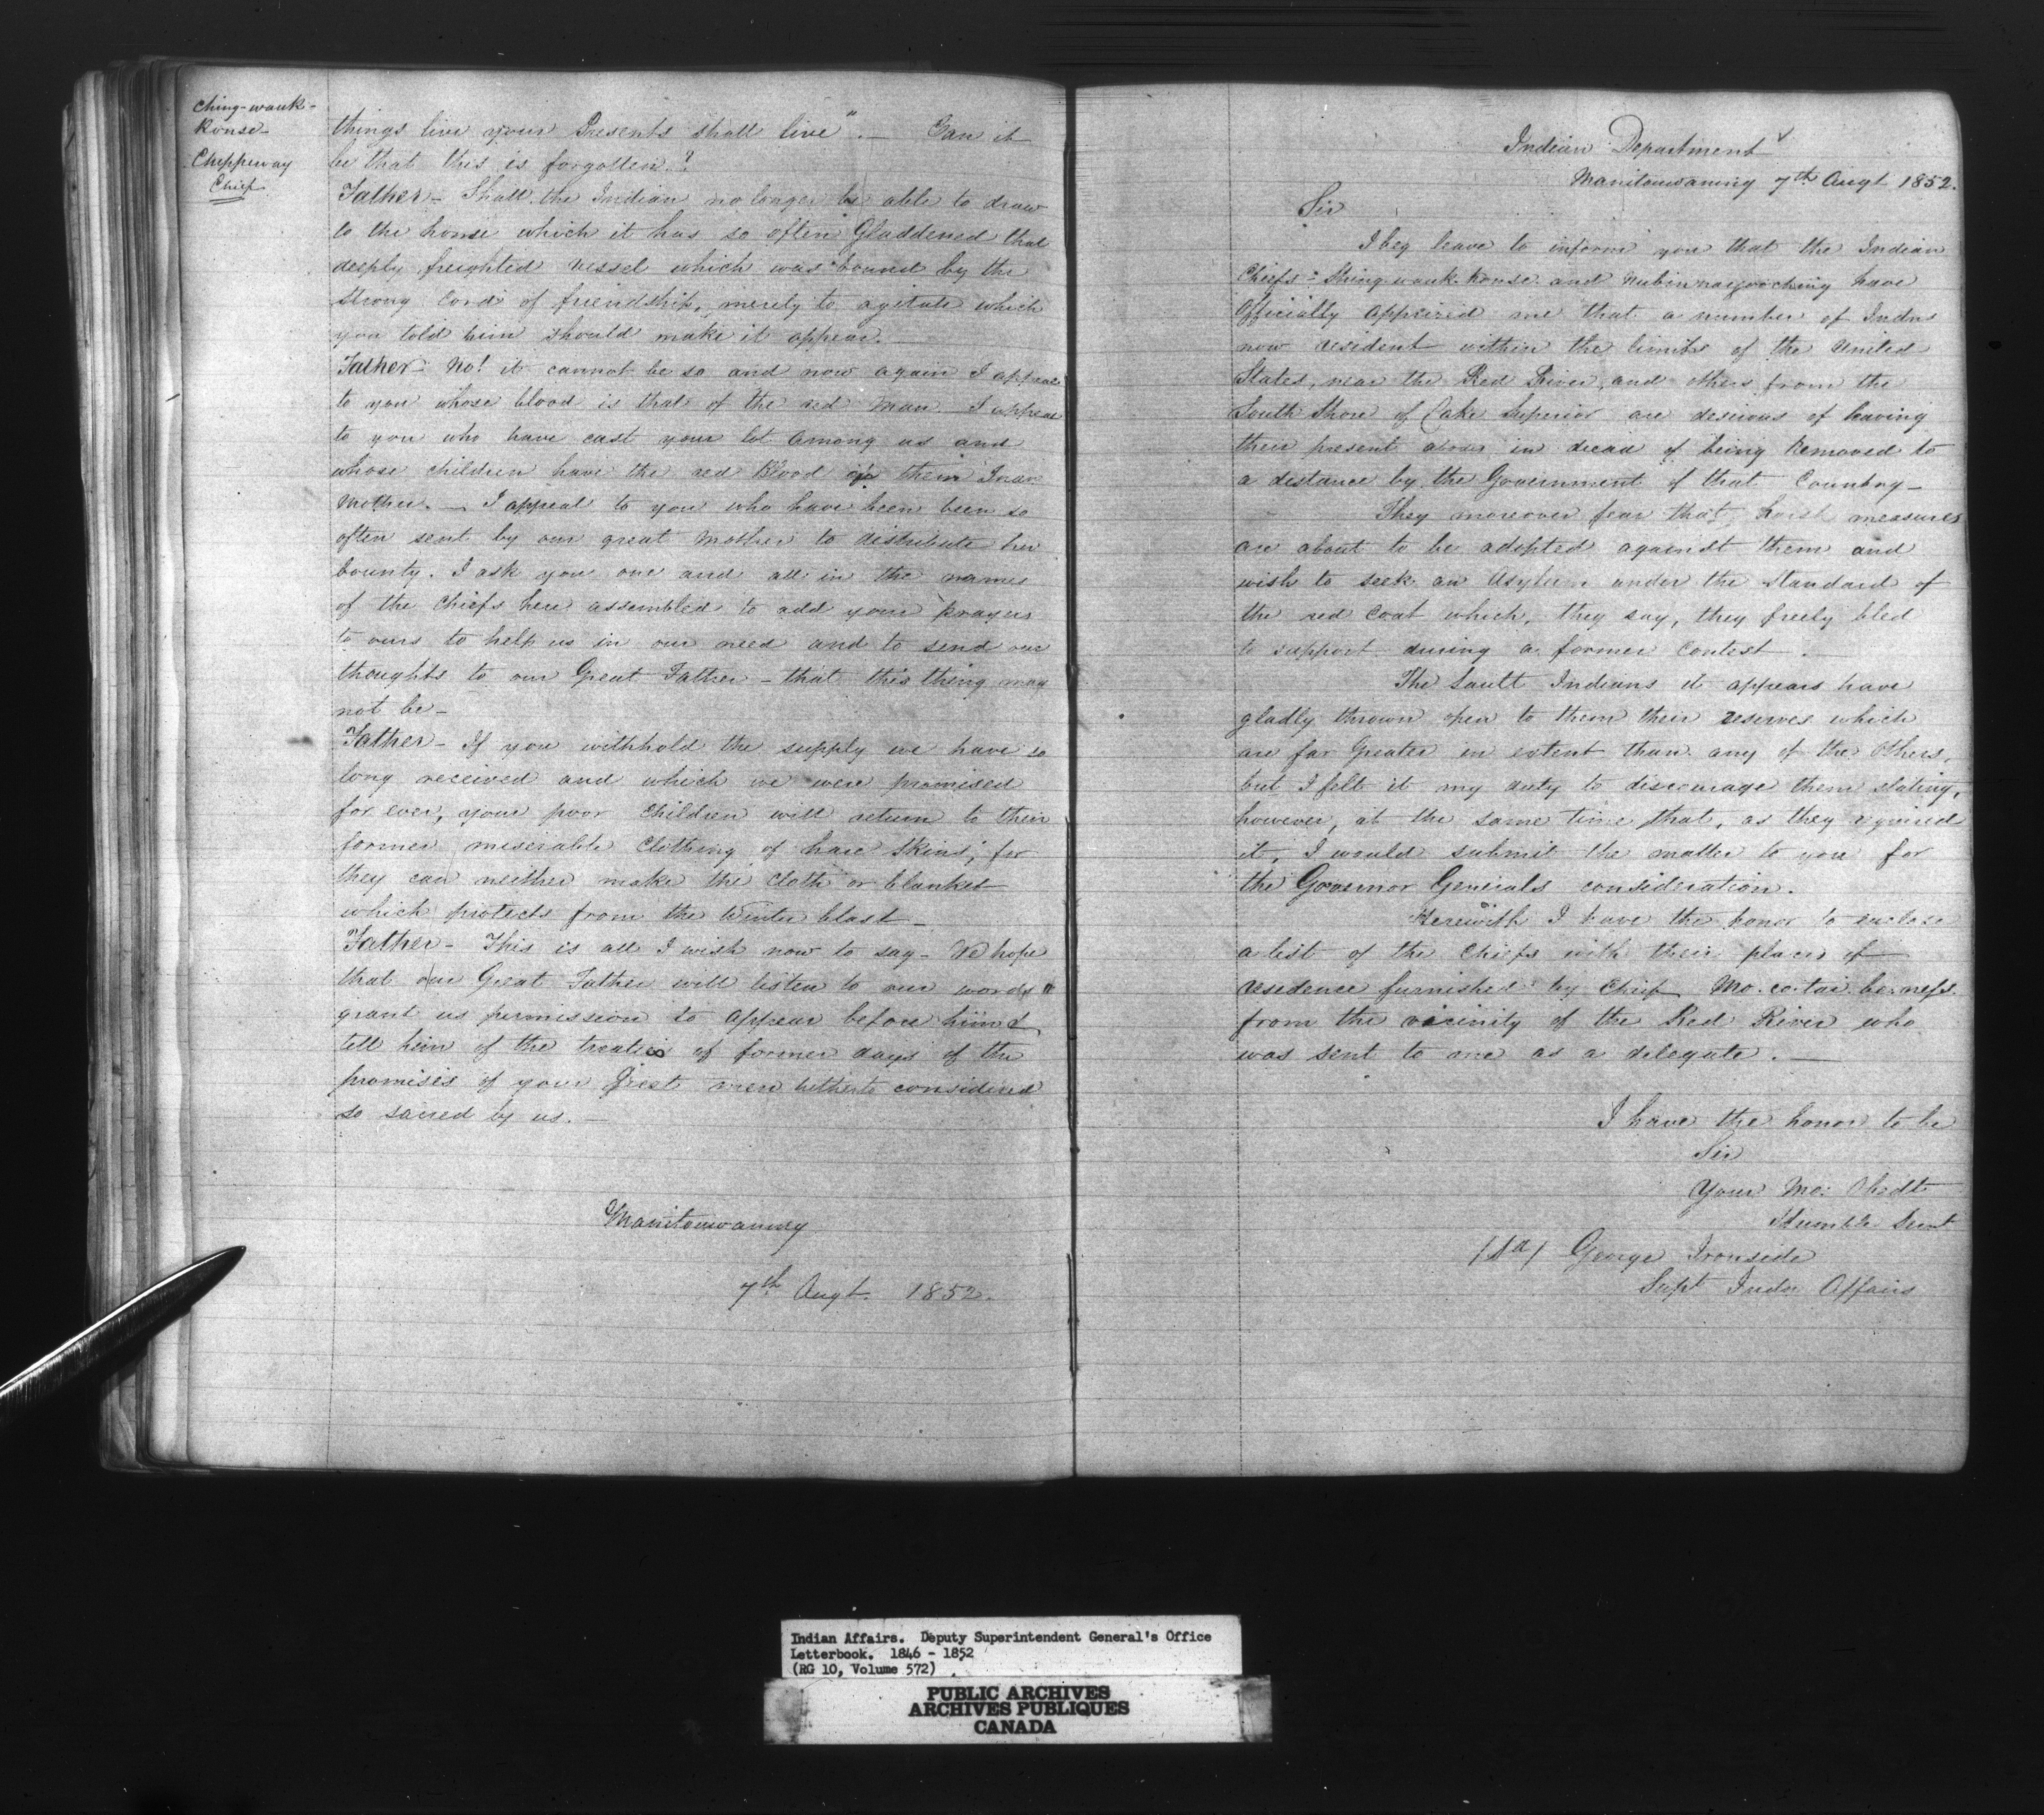 Ching-wauk-
Konse-
Chippeway
Chief.
things live your Presents shall live". — Can it
be that this is forgotten?
Father - Shall the Indian no longer be able to draw
to the home which it has so often Gladdened that
deeply freighted vessel which was bound by the
strong cord of friendship, merely to agitate which
you told him should make it appear.
Father - No! it cannot be so and now again I appeal
to you whose blood is that of the red Man - I appeal
to you who have cast your lot among us and
whose children have the red blood of their Indn
Mother. - I appeal to you who have been been so
often sent by our great Mother to distribute her
bounty. I ask you one and all in the names
of the Chiefs here assembled to add your prayers
to ours to help us in our need and to send our
thoughts to our Great Father - that this thing may
not be -
Father - If you withhold the supply we have so
long received and which we were promised
for ever, your poor Children will return to their
former miserable Clothing of hare skins, for
they can neither make the Cloth or blanket
which protects from the Winter blast -
Father - This is all I wish now to say - We hope
that our Great Father will listen to our words
grant us permission to appear before him &
tell him of the treaties of former days of the
promises of your great men hitherto considered
so sacred by us. -
Manitouwaning
7th Augt. 1852.
Indian Department
Manitouwaning 7th Augt 1852.
Sir
I beg leave to inform you that the Indian
Chiefs - Shing-wauk-konse and have
Officially apprized me that a number of Indns
now resident within the limits of the United
States, near the Red River, and others from the
South Shore of Lake Superior are desirous of leaving
their present abodes in dread of being Removed to
a distance by the Government of that Country -
They moreover fear that harsh measures
are about to be adopted against them and
wish to seek an Asylum under the Standard of
the red Coat which, they say, they freely bled
to support during a former Contest. -
The Sault Indians it appears have
gladly thrown open to them their reserves which
are far Greater in extent than any of the Others,
but I felt it my duty to discourage them stating,
however, at the same time that, as they required
it, I would submit the matter to you for
the Governor Generals consideration.
Herewith I have the honor to enclose
a list of the Chiefs with their places of
residence furnished by Chief Mo.co.tai.be.nefs.
from the vicinity of the Red River who
was sent to me as a delegate. —
I have the honor to be
Sir
Your Mo: Obedt
Humble Servt
(Sd) George Ironside
Supt Indn Affairs
Indian Affairs. Deputy Superintendent General's Office
Letterbook. 1846 - 1852
(RG 10, Volume 572)
PUBLIC ARCHIVES
ARCHIVES PUBLIQUES
CANADA